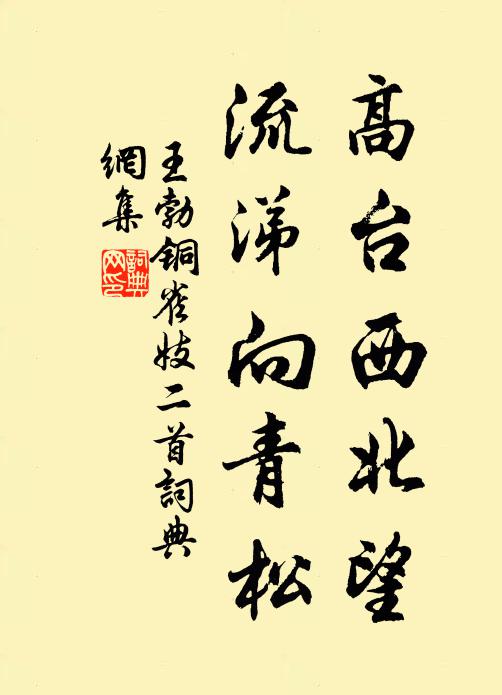 高台西北望
流涕向青松
王勃銅雀妓二首詞典
網集
詞典網印